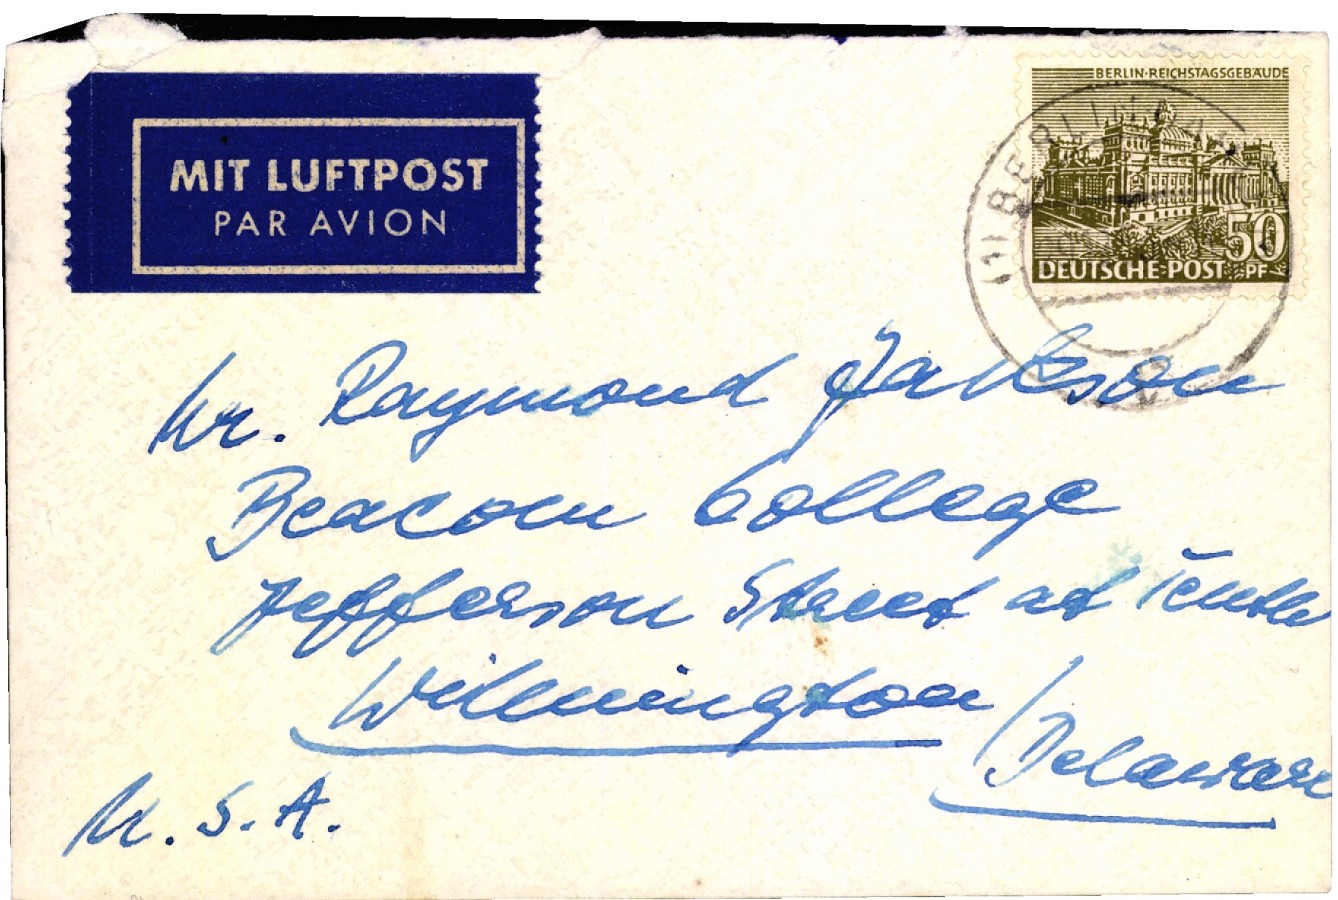 MIT LUFTPOST
PAR AVION
BERLIN-REICHSTAGSGEBÄUDE
50
DEUTSCHE-POST PF
BERLIN
Mr. Raymond Jakson
Beacom College
Jefferson Street at Tenth
Wilmington / Delaware
U. S. A.